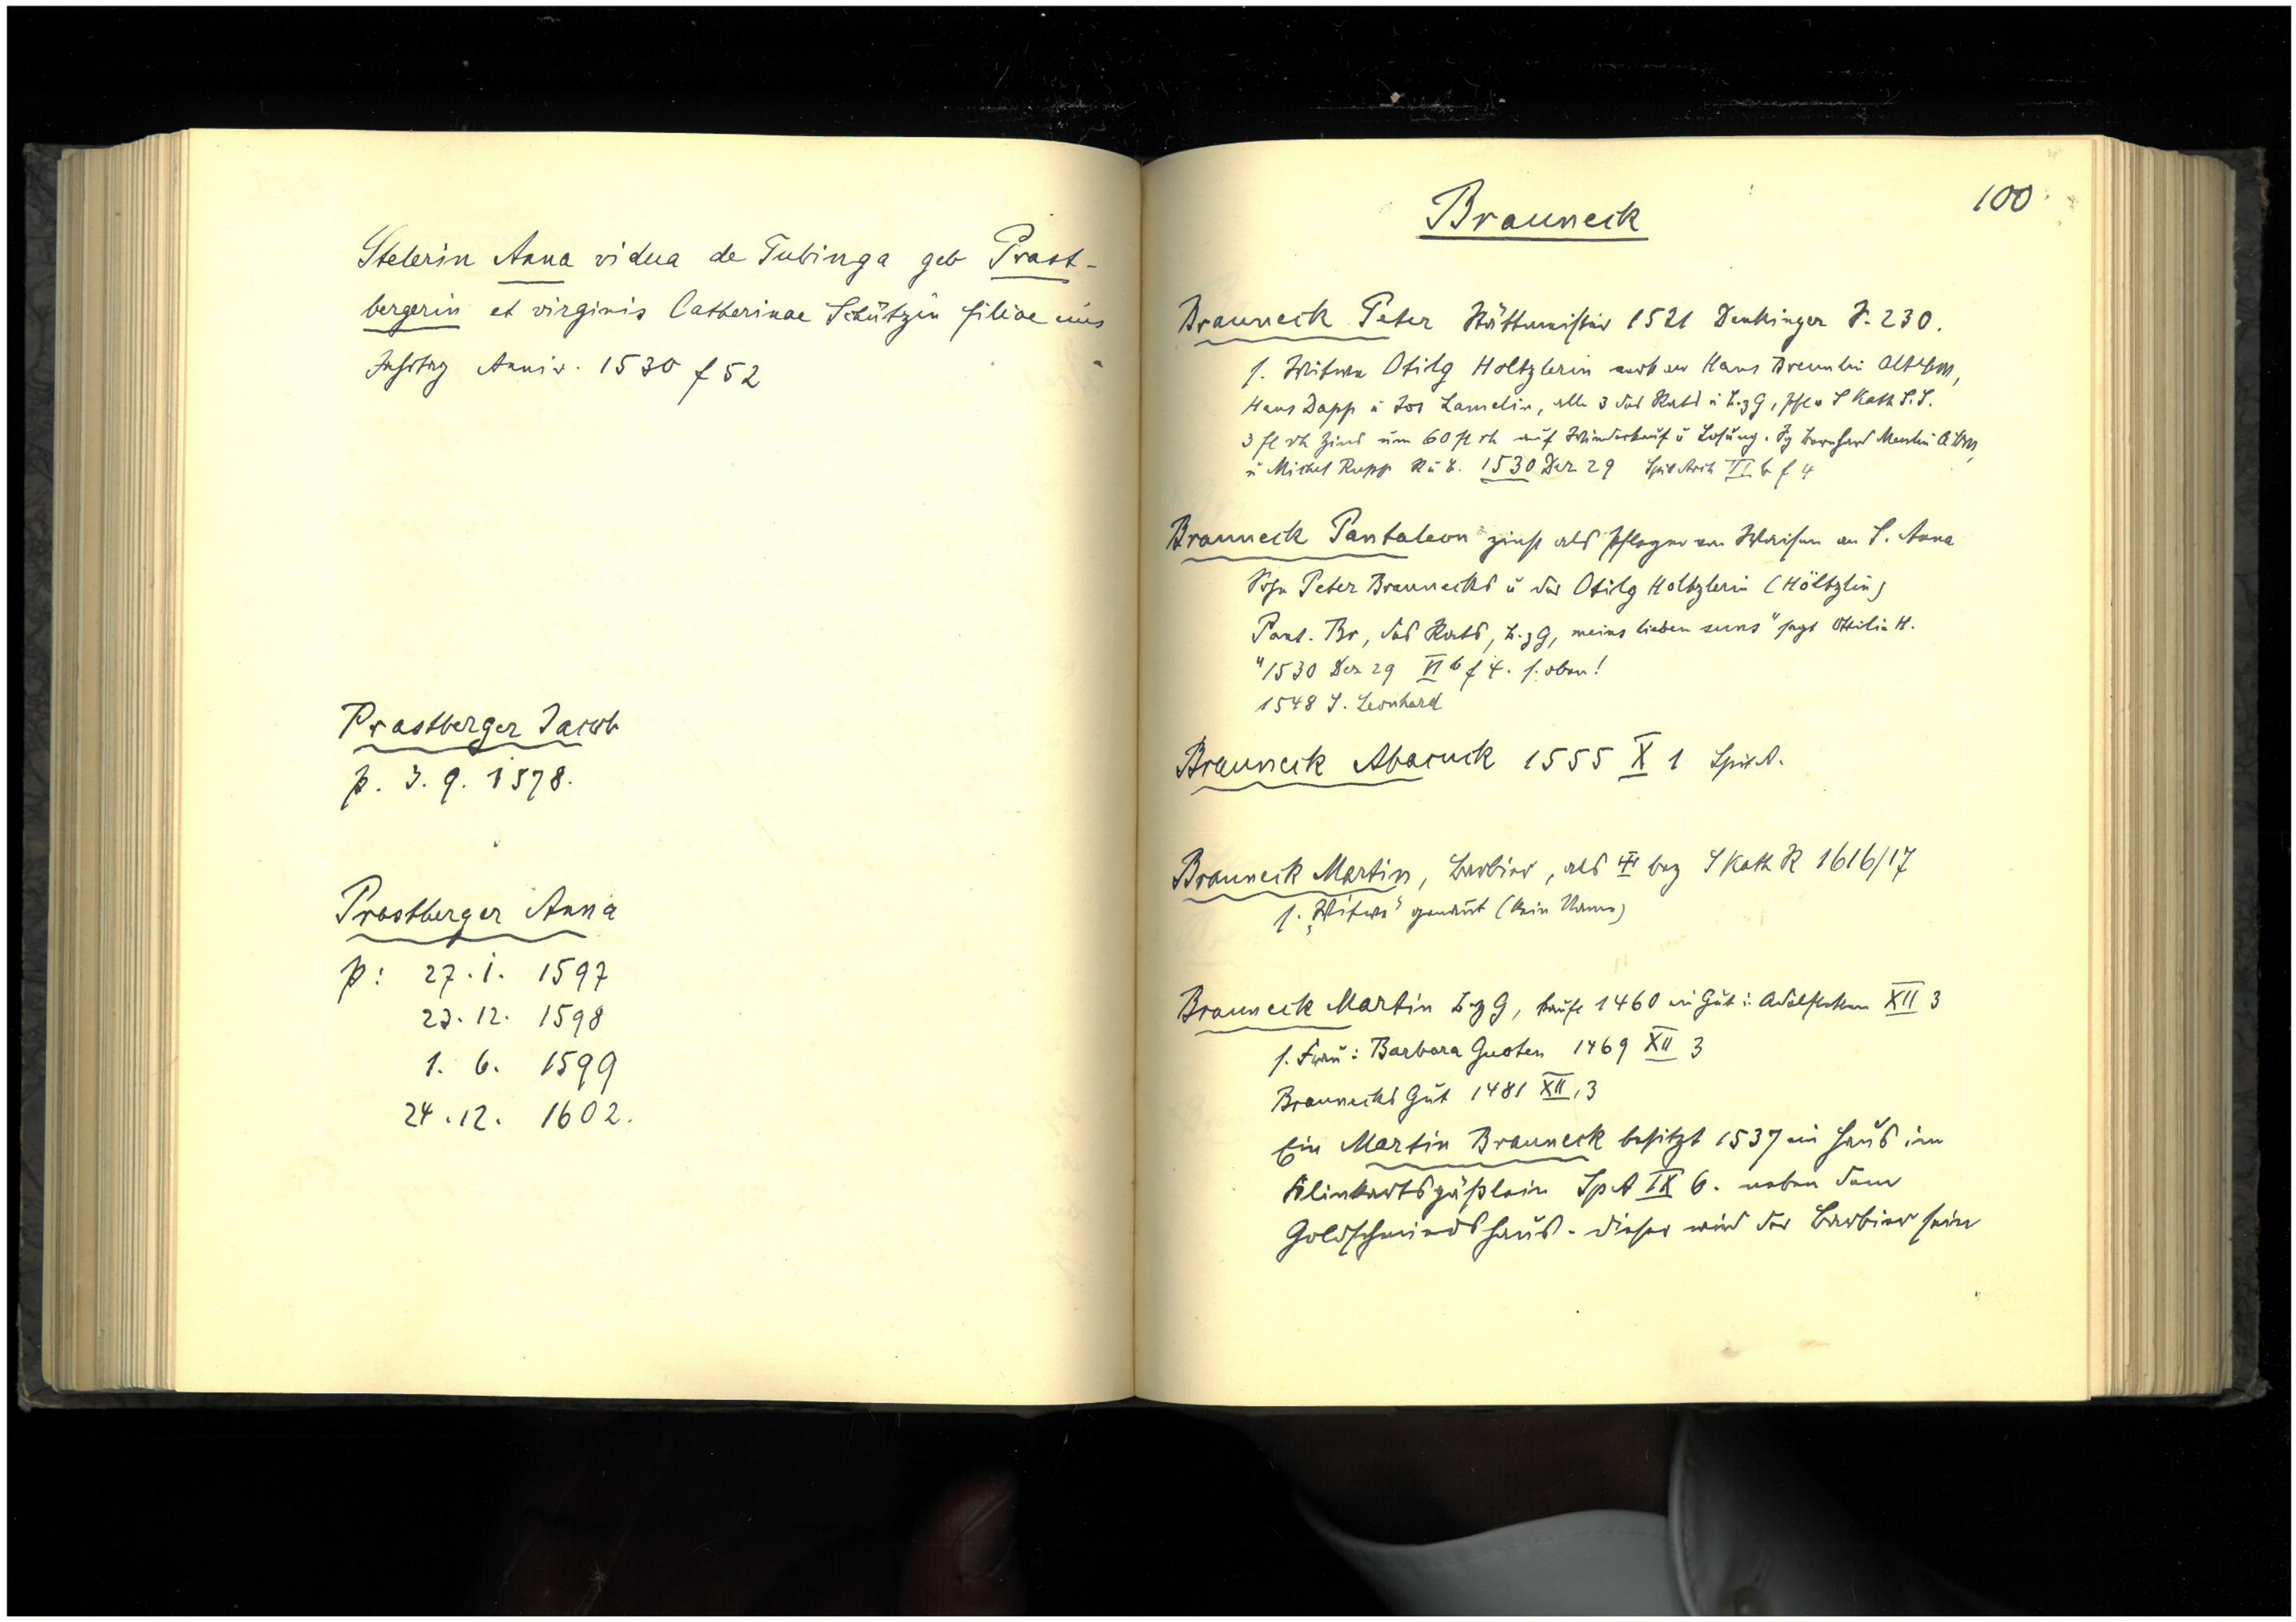 Stelerin Anna vidua de Tubinga geb Prast-
bergerin et virginis Catherinae Schützin filiae eius
Jahrtag Anniv. 1530 f 52
Prastberger Jacob
p. 3. 9. 1578.
Prastberger Anna
p: 27. i. 1597
23. 12. 1598
1. 6. 1599
24. 12. 1602.
100
Brauneck
Brauneck Peter Stättmeister 1521 Denkinger S. 230.
s. Witwe Otilg Holtzlerin Hans Bremlin Altbm,
Hans Dapp u Jos Lamelin, alle 3 des Rats u b.z G, pfl v S Kath S.S.
3 fl rh Zins um 60 fl rh auf Widerkauf u Losung. Bernhard Menlin
u Michel Rupp R u b. 1530 Dez 29 Spit Arch VI b f 4
Brauneck Pantaleon zinst als Pfleger von Waisen an S. Anna
Sohn Peter Braunecks u der Otilg Holtzlerin (Höltzlin)
Pant. Br, des Rats, b.z G, meins lieben suns" sagt Ottilie H.
"1530 Dez 29 VI b f 4. s. oben!
1548 S. Leonhard
Brauneck Abacuck 1555 X 1 Spit A.
Brauneck Martin, Barbier, als bez S Kath R 1616/17
s. „Witwe" genannt (kein Name)
Brauneck Martin b z G, kauft 1460 ein Gut i. Adelstetten XII 3
s. Frau: Barbara Guoten 1469 XII 3
Braunecks Gut 1481 XII, 3
Ein Martin Brauneck besitzt 1537 ein Haus im
Klinkertsgäßlein Sp A IX 6. neben dem
Goldschmieds haus - dieser wird der Barbier sein